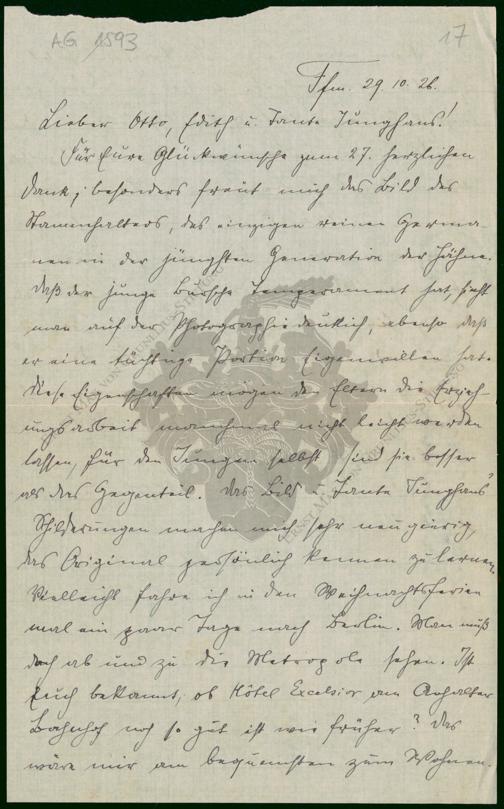 AG 1593
17
Ffm. 29.10.26.
Lieber Otto, Edith u. Tante Junghans!
Für Eure Glückwünsche zum 27. herzlichen
Dank; besonders freut mich das Bild des
Stammhalters, des einzigen reinen Germa-
nen in der jüngsten Generation der Hähne.
Daß der junge Bursche Temperament hat, sieht
man auf der Photographie deutlich, ebenso daß
er eine tüchtige Portion Eigenwillen hat.
Diese Eigenschaften mögen den Eltern die Erzieh-
ungsarbeit manchmal nicht leicht werden
lassen, für den Jungen selbst sind sie besser
als das Gegenteil. Das Bild u. Tante Junghans'
Schilderungen machen mich sehr neugierig,
das Original persönlich kennen zu lernen.
Vielleicht fahre ich in den Weihnachtsferien
mal ein paar Tage nach Berlin. Man muß
doch ab und zu die Metropole sehen. Ist
Euch bekannt, ob Hôtel Excelsior am Anhalter
Bahnhof noch so gut ist wie früher? Das
wäre mir am bequemsten zum Wohnen.